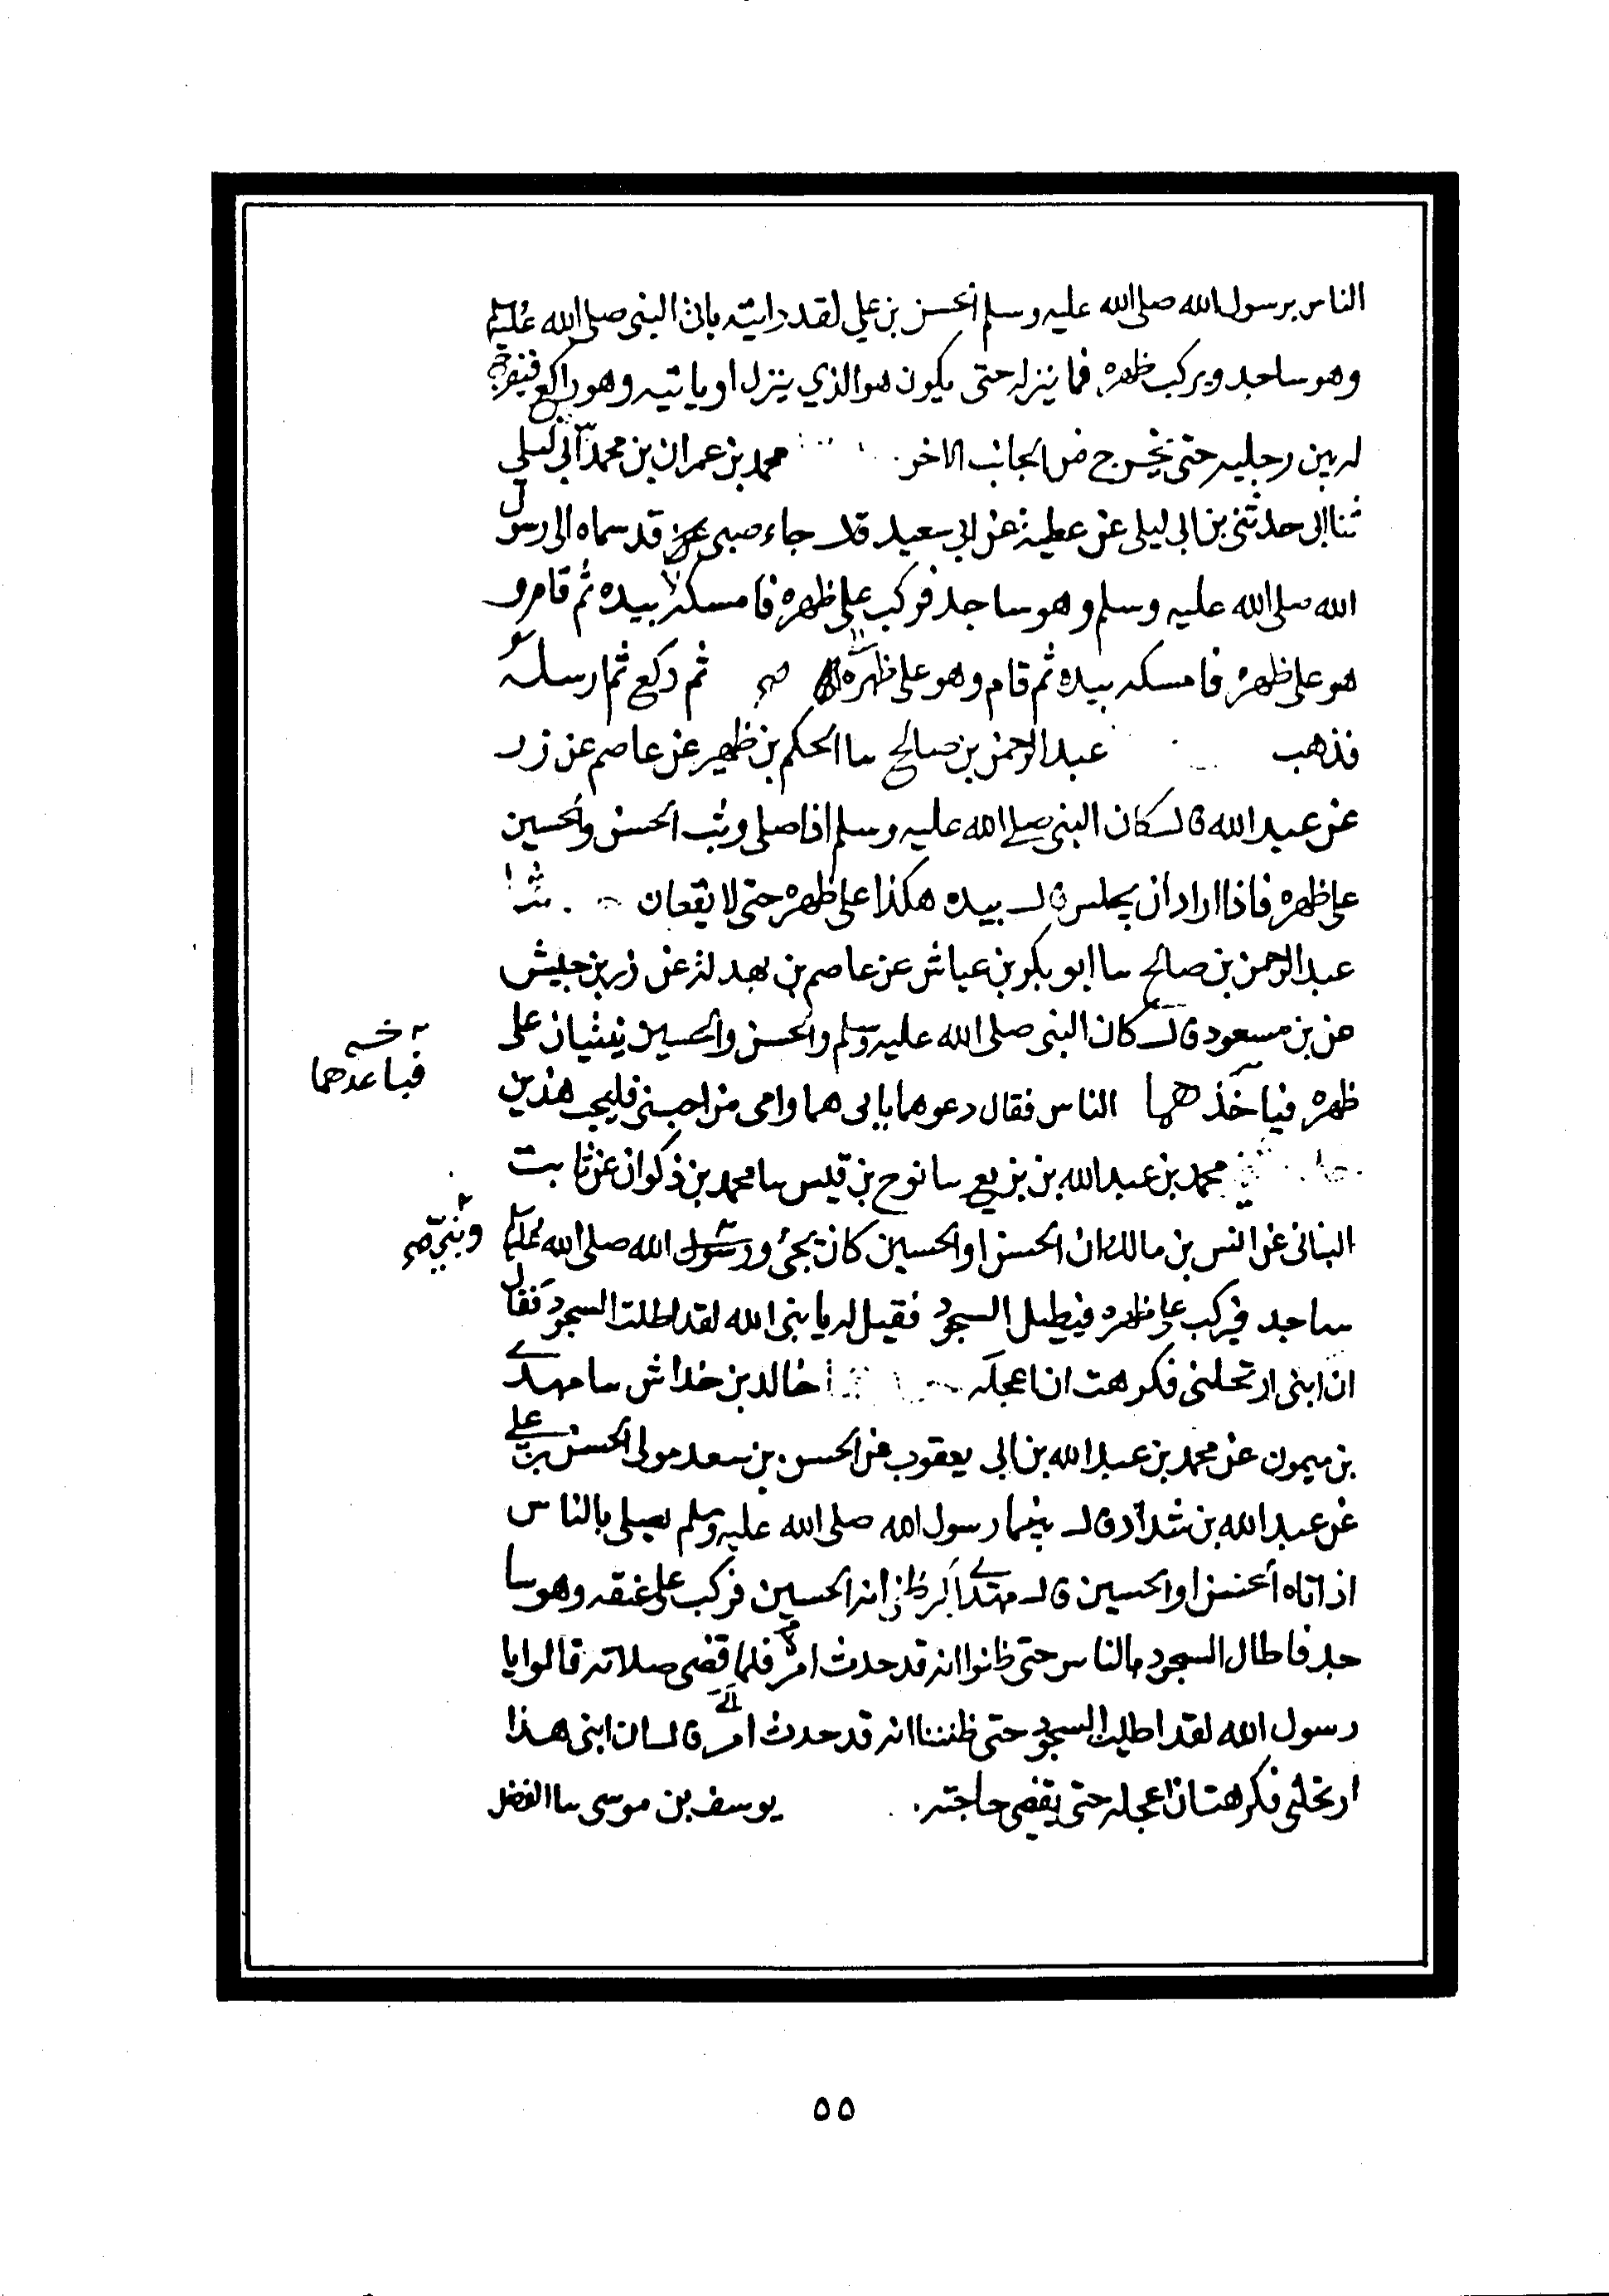 الناس برسول الله صلى الله عليه وسلم الحسن بن علي لقد رايته ياتى النبى صلى الله عليه
وهو ساجد ويركب ظهره فما ينزله حتى يكون هو الذي ينزل او ياتيه وهو راكع فيفرج
له بين رجليه حتى يخرج من الجانب الاخر محمد بن عمران بن محمد ابى ليلى
ثنا ابى حدثنى بن ابى ليلى عن عطية عن ابى سعيد قال جاء صبى قد سماه الى رسول
الله صلى الله عليه وسلم وهو ساجد فركب على ظهره فامسكه بيده ثم قام و
هو على ظهره فامسكه بيده ثم قام وهو على ظهره ثم ركع ثم ارسله
فذهب عبد الرحمن بن صالح سا الحكم بن ظهير عن عاصم عن زر
عن عبد الله قال كان النبى صلى الله عليه وسلم اذا صلى وثب الحسن والحسين
على ظهره فاذا اراد ان يجلس قال بيده هكذا على ظهره حتى لا يقعان
عبد الرحمن بن صالح سا ابو بكر بن عياش عن عاصم بن بهدلة عن زر بن حبيش
عن بن مسعود قال كان النبى صلى الله عليه وسلم والحسن والحسين يثبان على
ظهره فياخذهما الناس فقال دعوهما بابى هما وامى من احبنى فليحب هذين
فباعدهما
محمد بن عبد الله بن بزيع سا نوح بن قيس سا محمد بن ذكوان عن ثابت
البنانى عن انس بن مالك ان الحسن او الحسين كان يجئ ورسول الله صلى الله عليه
ونبى
ساجد فيركب على ظهره فيطيل السجود فقيل له يا نبى الله لقد اطلت السجود فقال
ان ابنى ارتحلنى فكرهت ان اعجله خالد بن خداش سا مهدى
بن ميمون عن محمد بن عبد الله بن ابى يعقوب عن الحسن بن سعد مولى الحسن بن على
عن عبد الله بن شداد قال بينما رسول الله صلى الله عليه وسلم يصلى بالناس
اذ اتاه الحسن او الحسين قال مهدى اكبر ظنى انه الحسين فركب على عنقه وهو سا
جد فاطال السجود بالناس حتى ظنوا انه قد حدث امر فلما قضى صلاته قالوا يا
رسول الله لقد اطلت السجود حتى ظننا انه قد حدث امر قال ان ابنى هذا
ارتحلنى فكرهت ان اعجله حتى يقضى حاجته يوسف بن موسى سا الفضل
٥٥